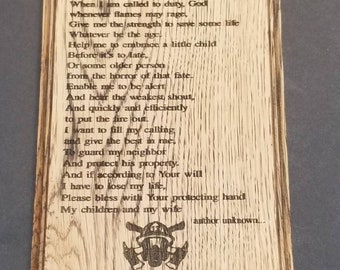 When I am called to duty, God
whenever flames may rage,
Give me the strength to save some life
Whatever be the age.
Help me to embrace a little child
Before it's to late,
Or some older person
from the horror of that fate.
Enable me to be alert
And hear the weakest shout,
And quickly and efficiently
to put the fire out.
I want to fill my calling
and give the best in me,
To guard my neighbor
And protect his property.
And if according to Your will
I have to lose my life,
Please bless with Your protecting hand
My children and my wife
author unknown...